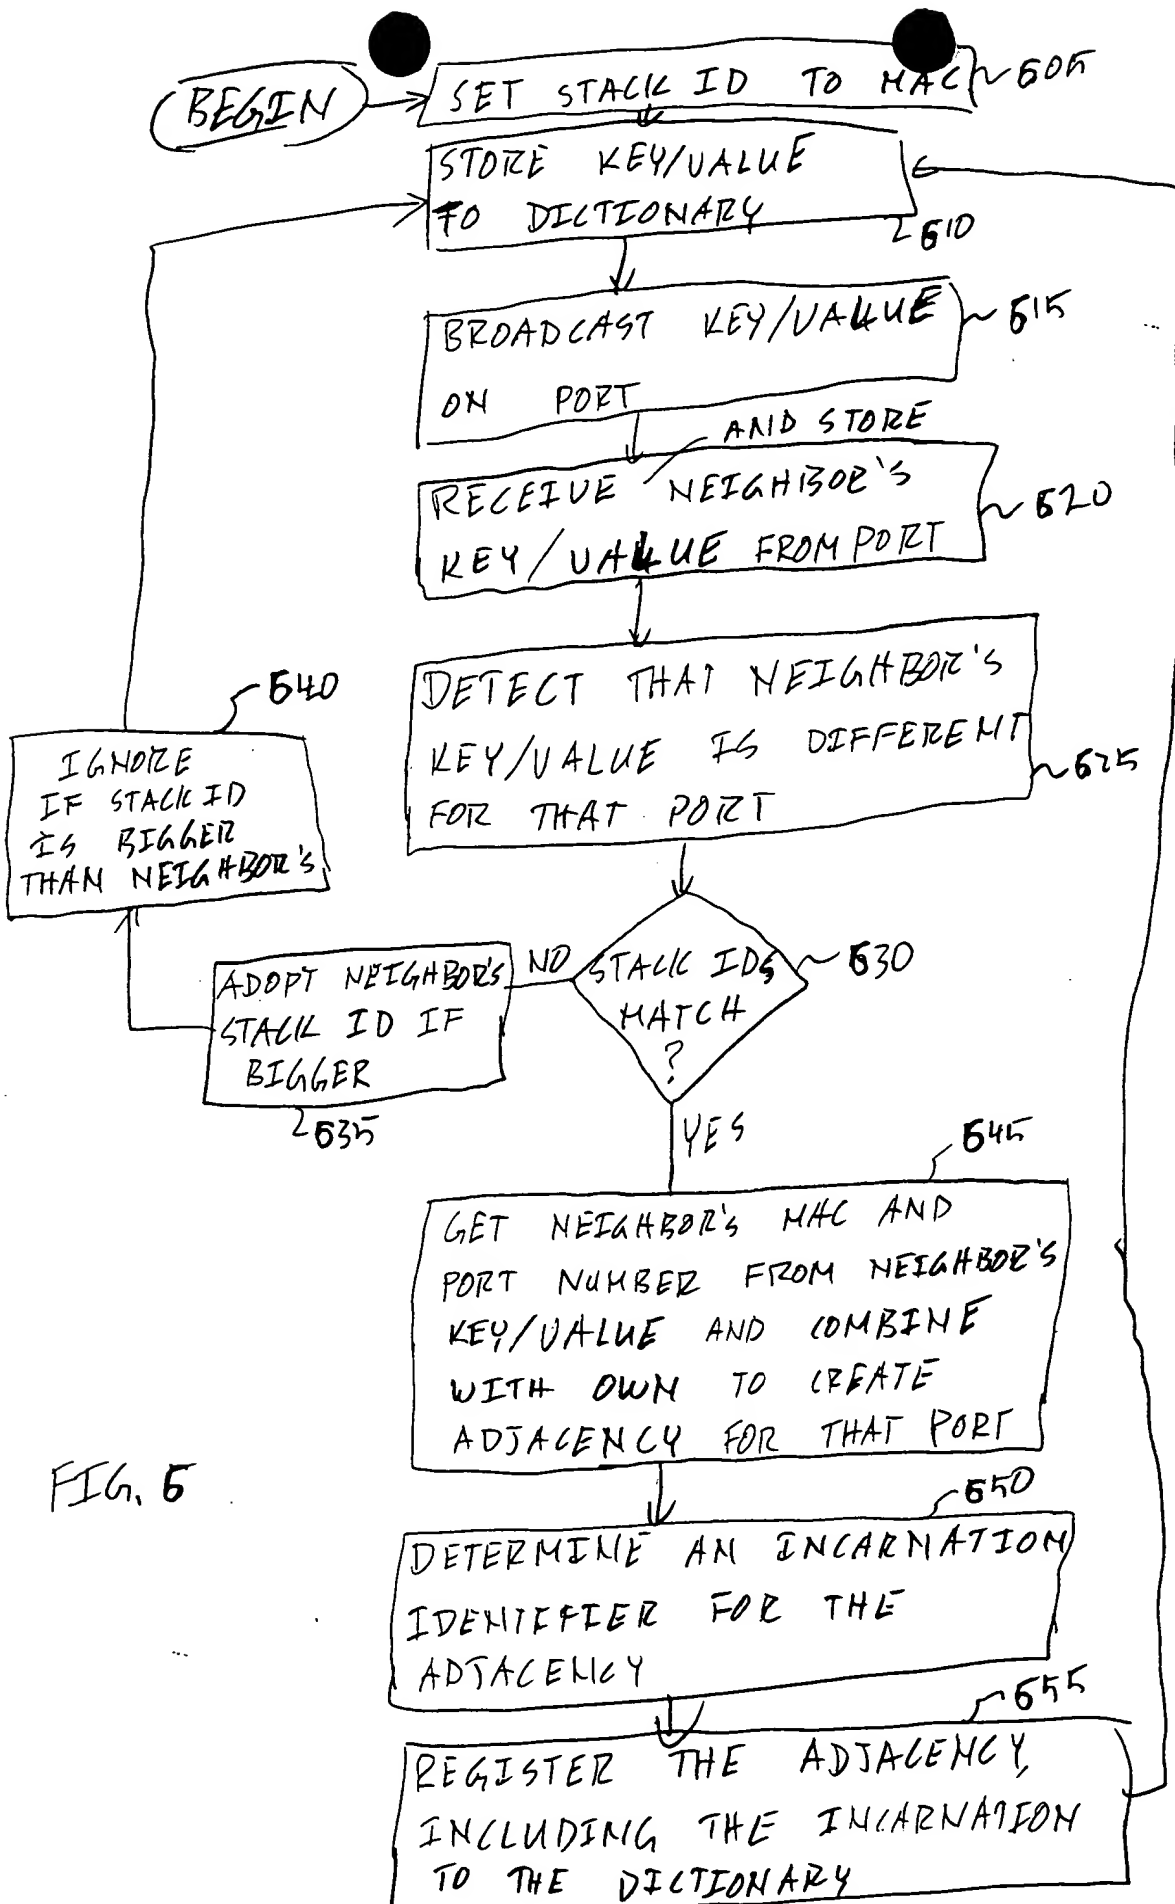 BEGIN
SET STACK ID TO MAC
505
STORE KEY/VALUE
TO DICTIONARY
510
BROADCAST KEY/VALUE
ON PORT
515
AND STORE
RECEIVE NEIGHBOR'S
KEY/VALUE FROM PORT
520
DETECT THAT NEIGHBOR'S
KEY/VALUE IS DIFFERENT
FOR THAT PORT
525
540
IGNORE
IF STACK ID
IS BIGGER
THAN NEIGHBOR'S
ADOPT NEIGHBOR'S
STACK ID IF
BIGGER
535
NO
STACK IDs
MATCH
?
530
YES
545
GET NEIGHBOR'S MAC AND
PORT NUMBER FROM NEIGHBOR'S
KEY/VALUE AND COMBINE
WITH OWN TO CREATE
ADJACENCY FOR THAT PORT
FIG. 5
550
DETERMINE AN INCARNATION
IDENTIFIER FOR THE
ADJACENCY
555
REGISTER THE ADJACENCY,
INCLUDING THE INCARNATION
TO THE DICTIONARY